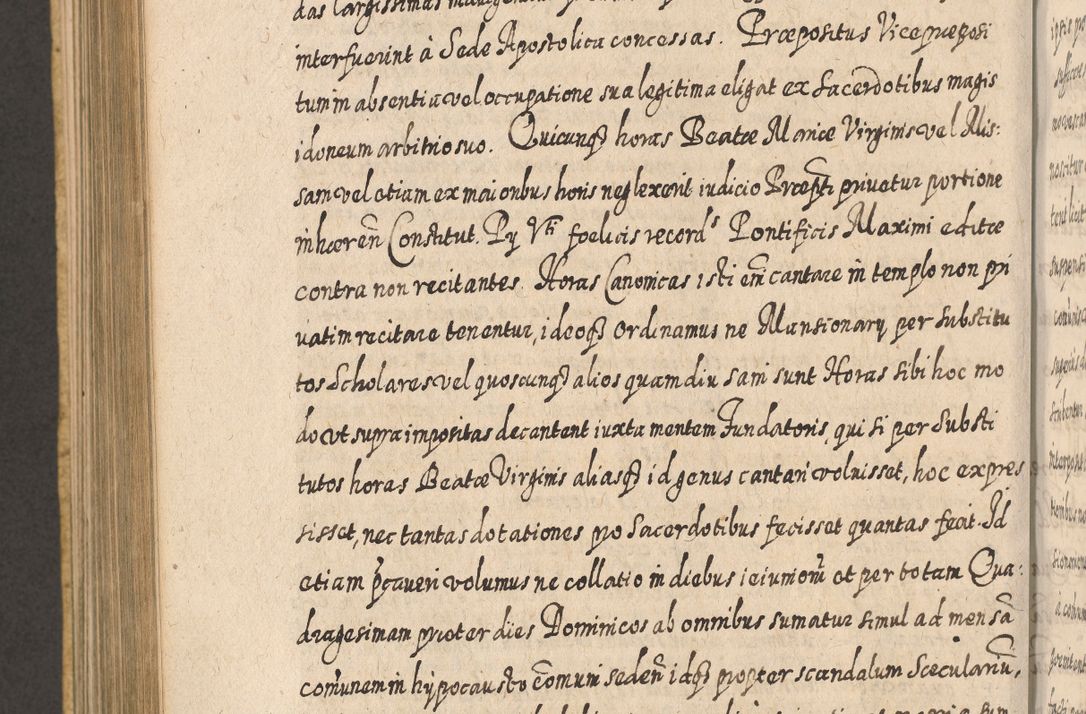 das largissimas
interfuerint à Sede Apostolica concessas. Præpositus Viceprẹposi
tum in absentia vel occupatione sua legitima eligat ex Sacerdotibus magis
idoneum arbitrio suo. Quicunq₃ horas Beatæ Mariæ Virginis vel Mis:
sam vel etiam ex maioribus horis neglexerit iudicio Præpti privetur portione
inhæren̄ Constitut. Pij Vti foelicis records Pontificis Maximi editæ
contra non recitantes. Horas Canonicas isti em̄ cantare in templo non pri
vatim recitare tenentur, ideoq₃ ordinamus ne Mansionarij per substitu
tos Scholares vel quoscunq₃ alios quamdiu sani sunt Horas sibi hoc mo
do ut supra impositas decantent iuxta mentem Fundatoris, qui si per Substi
tutos horas Beatæ Virginis aliasq₃ id genus cantari voluisset, hoc expres
sisset, nec tantas dotationes pro Sacerdotibus fecisset quantas fecit. Id
etiam p̄caveri volumus ne collatio in diebus ieiuniorum̄ et per totam Qua:
dragesimam præter dies Dominicos ab omnibus sumatur simul ad mensā
com̄unem in hypocausto com̄uni seden̄ idq₃ propter scandalum Sæculariū,